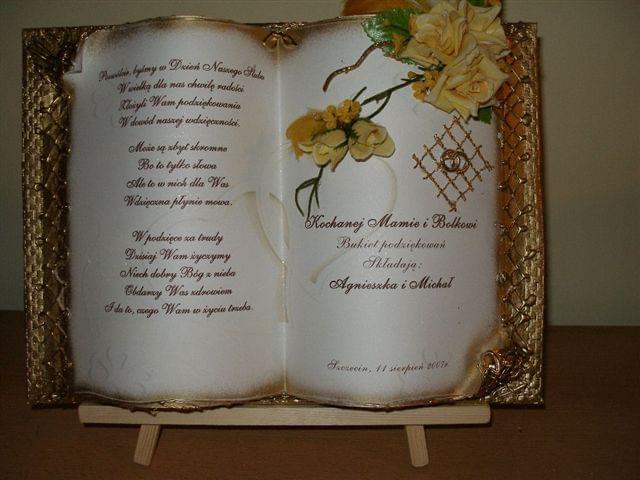 Pozwólcie, byśmy w Dzień Naszego Ślubu
W wielką dla nas chwilę radości
Złożyli Wam podziękowania
W dowód naszej wdzięczności.
Może są zbyt skromne
Bo to tylko słowa
Ale to w nich dla Was
Wdzięczna płynie mowa.
W podzięce za trudy
Dzisiaj Wam życzymy
Niech dobry Bóg z nieba
Obdarzy Was zdrowiem
I da to, czego Wam w życiu trzeba.
Kochanej Mamie i Bolkowi
Bukiet podziękowań
Składają:
Agnieszka i Michał
Szczecin, 11 sierpień 2007r.